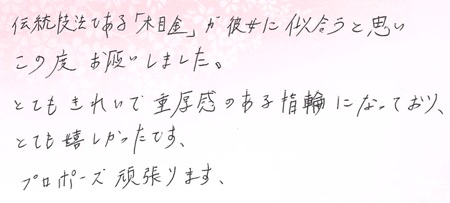 伝統技法である「木目金」が彼女に似合うと思い
この度 お願いしました。
とてもきれいで重厚感のある指輪になっており、
とても嬉しかったです、
プロポーズ頑張ります、